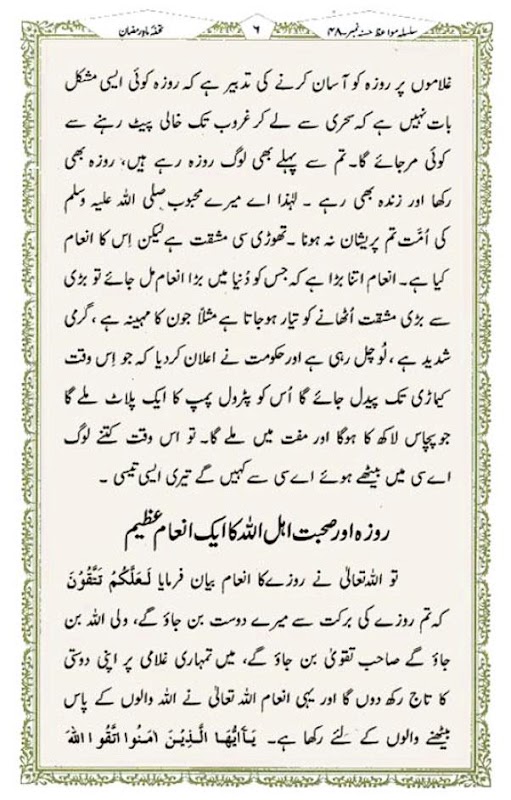 سلسلہ مواعظ حسنہ نمبر۔۴۸
۶
تحفۂ ماہِ رمضان
غلاموں پر روزہ کو آسان کرنے کی تدبیر ہے کہ روزہ کوئی ایسی مشکل
بات نہیں ہے کہ سحری سے لے کر غروب تک خالی پیٹ رہنے سے
کوئی مرجائے گا۔ تم سے پہلے بھی لوگ روزہ رہے ہیں، روزہ بھی
رکھا اور زندہ بھی رہے ۔ لہٰذا اے میرے محبوب صلی اللہ علیہ وسلم
کی اُمّت تم پریشان نہ ہونا ۔ تھوڑی سی مشقت ہے لیکن اِس کا انعام
کیا ہے۔ انعام اتنا بڑا ہے کہ جس کو دُنیا میں بڑا انعام مل جائے تو بڑی
سے بڑی مشقت اُٹھانے کو تیار ہوجاتا ہے مثلاً جون کا مہینہ ہے ، گرمی
شدید ہے ، لُو چل رہی ہے اور حکومت نے اعلان کردیا کہ جو اِس وقت
کیماڑی تک پیدل جائے گا اُس کو پٹرول پمپ کا ایک پلاٹ ملے گا
جو پچاس لاکھ کا ہوگا اور مفت میں ملے گا۔ تو اس وقت کتنے لوگ
اے سی میں بیٹھے ہوئے اے سی سے کہیں گے تیری ایسی تیسی ۔
روزہ اور صحبت اہل اللہ کا ایک انعام عظیم
تو اللہ تعالیٰ نے روزے کا انعام بیان فرمایا لَعَلَّکُمْ تَتَّقُوْنَ
کہ تم روزے کی برکت سے میرے دوست بن جاؤ گے، ولی اللہ بن
جاؤ گے صاحب تقویٰ بن جاؤ گے، میں تمہاری غلامی پر اپنی دوستی
کا تاج رکھ دوں گا اور یہی انعام اللہ تعالیٰ نے اللہ والوں کے پاس
بیٹھنے والوں کے لئے رکھا ہے۔ یٰۤاَیُّهَا الَّذِیْنَ اٰمَنُوا اتَّقُوا اللّٰهَ